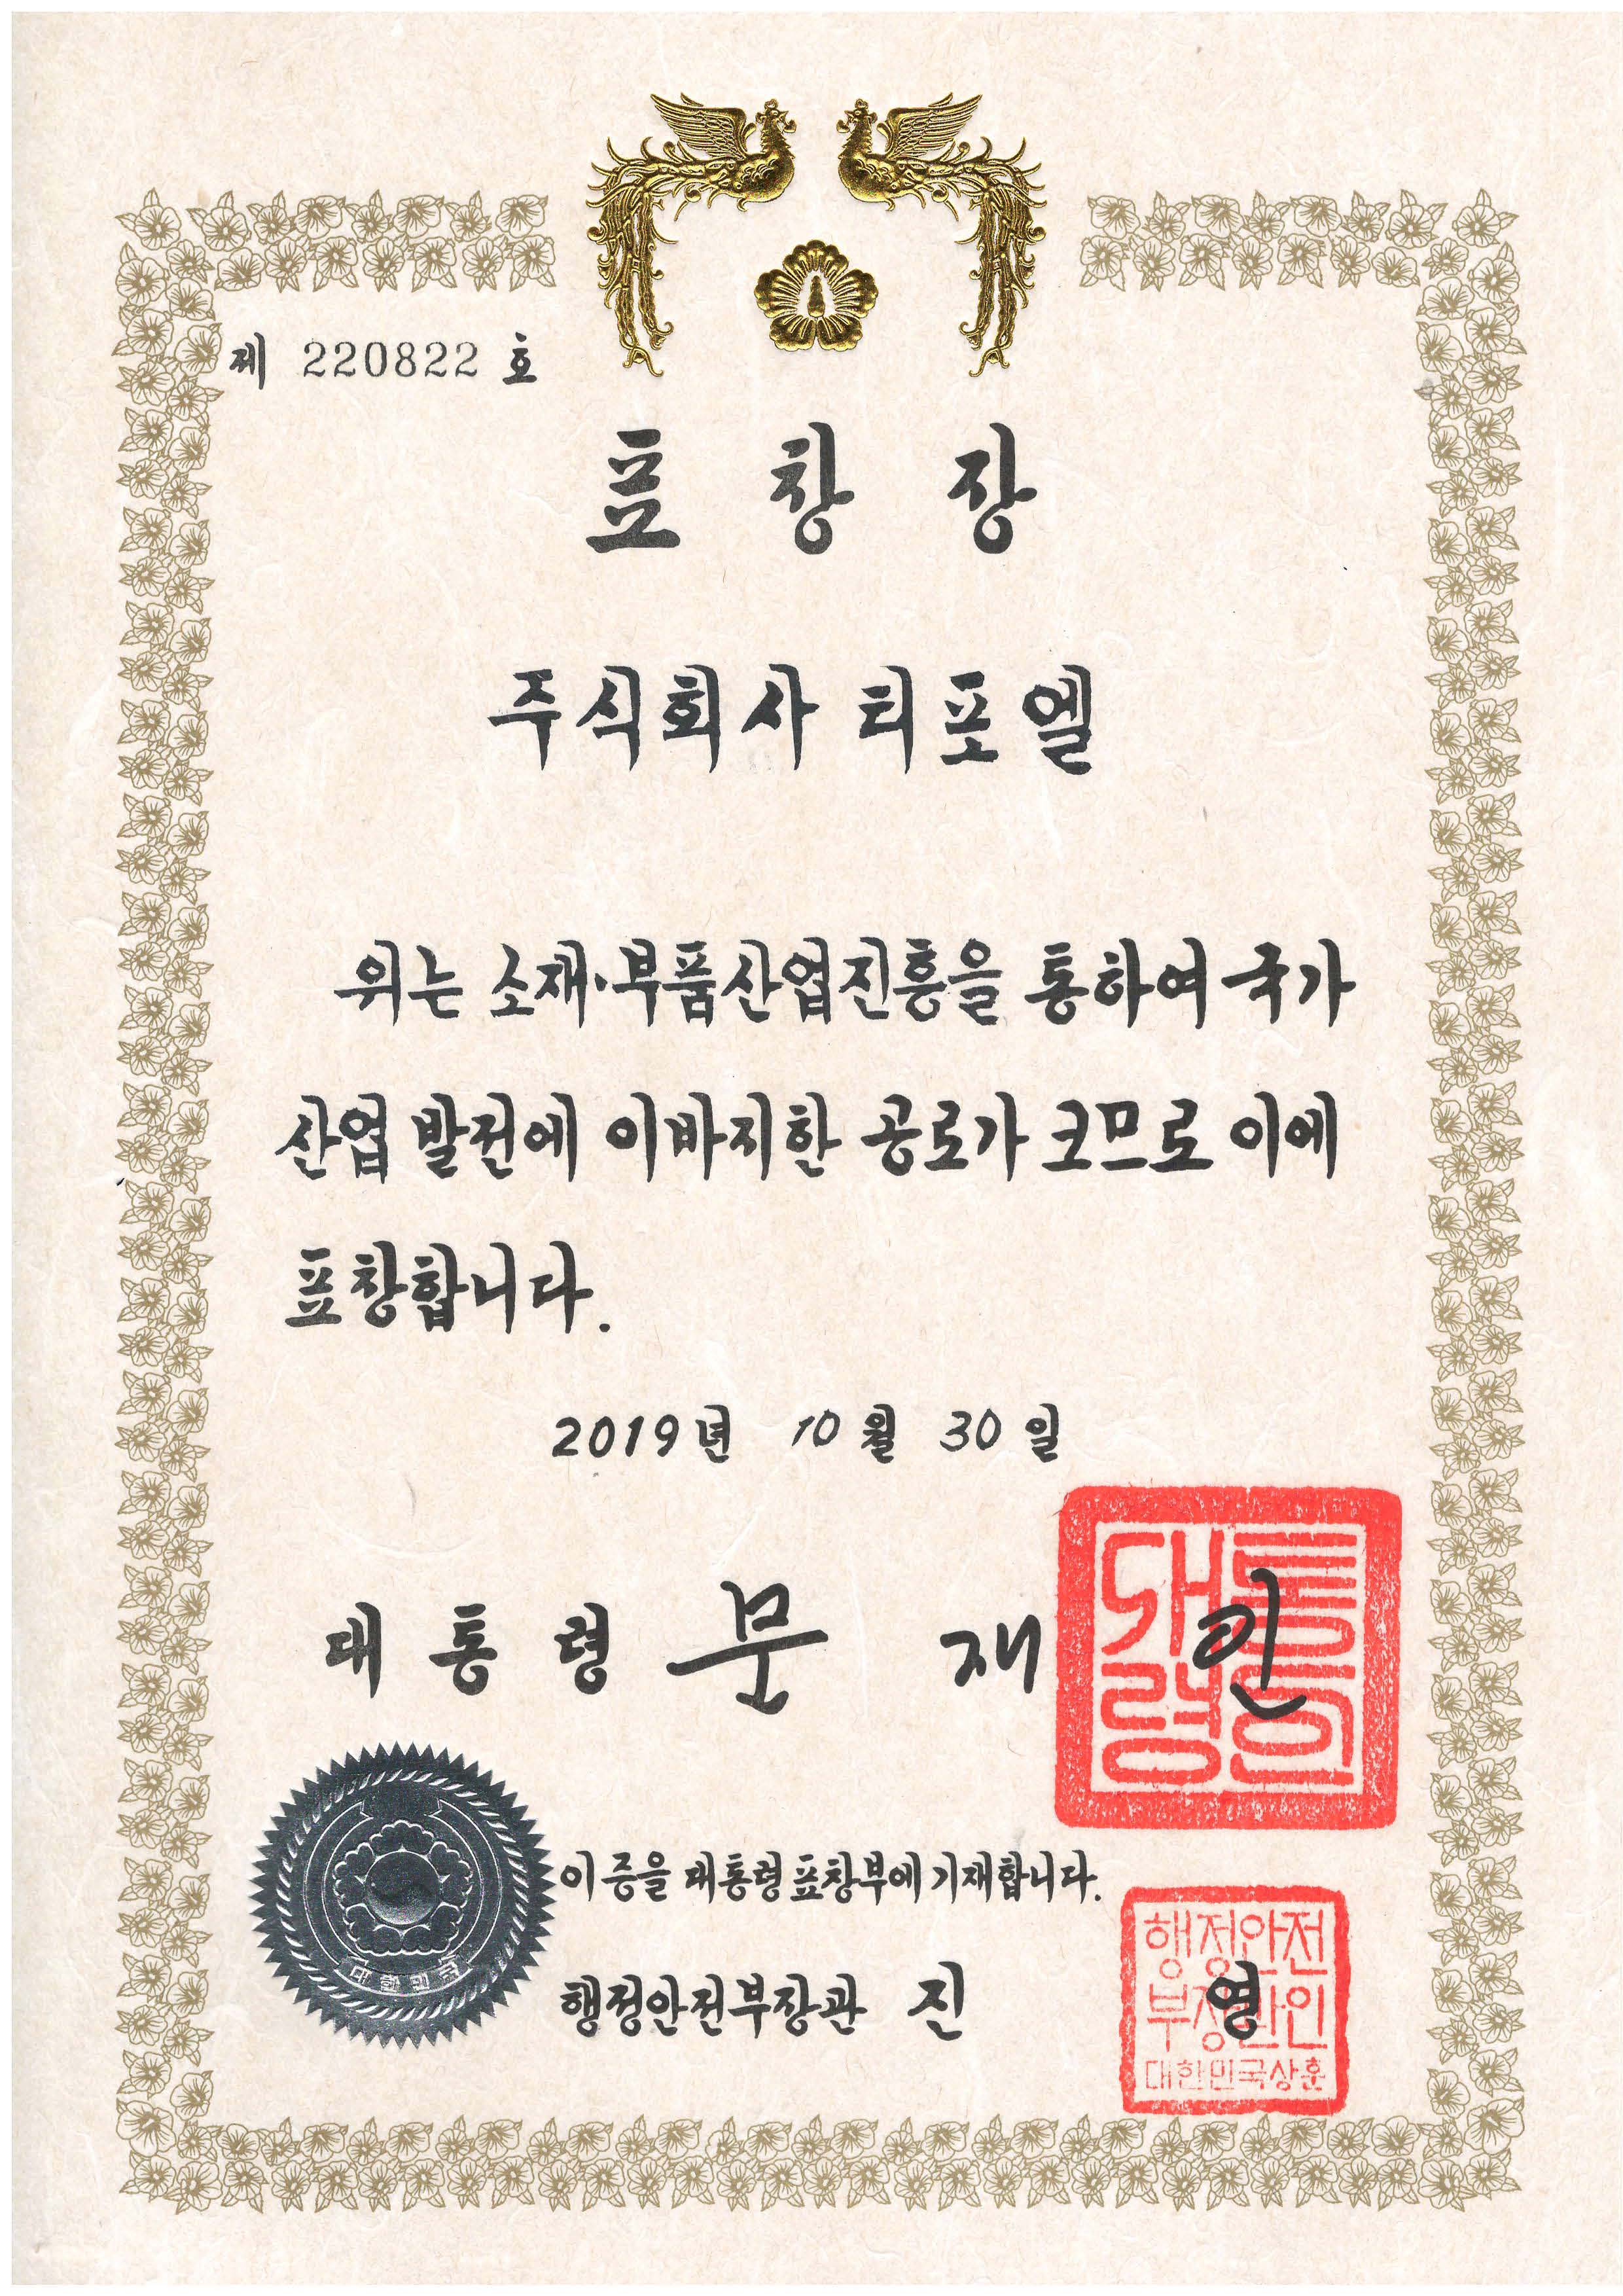 제 220822 호
표 창 장
주식회사 티포엘
위는 소재·부품산업진흥을 통하여 국가
산업 발전에 이바지한 공로가 크므로 이에
표창합니다.
2019년 10월 30일
대통령 문재인
대통령인
이 증을 대통령표창부에 기재합니다.
행정안전부장관 진영
행정안전
부장관인
대한민국상훈
대한민국